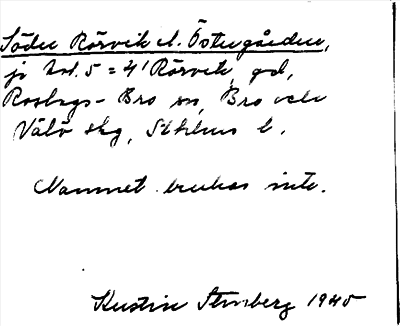 Söder Rörvik el. Östergården,
je hd. 5 = 4¹ Rörvik, gd,
Roslags-Bro sn, Bro och
Välö skg, Sthlms l.
Namnet brukas inte.
Kerstin Stenberg 1940